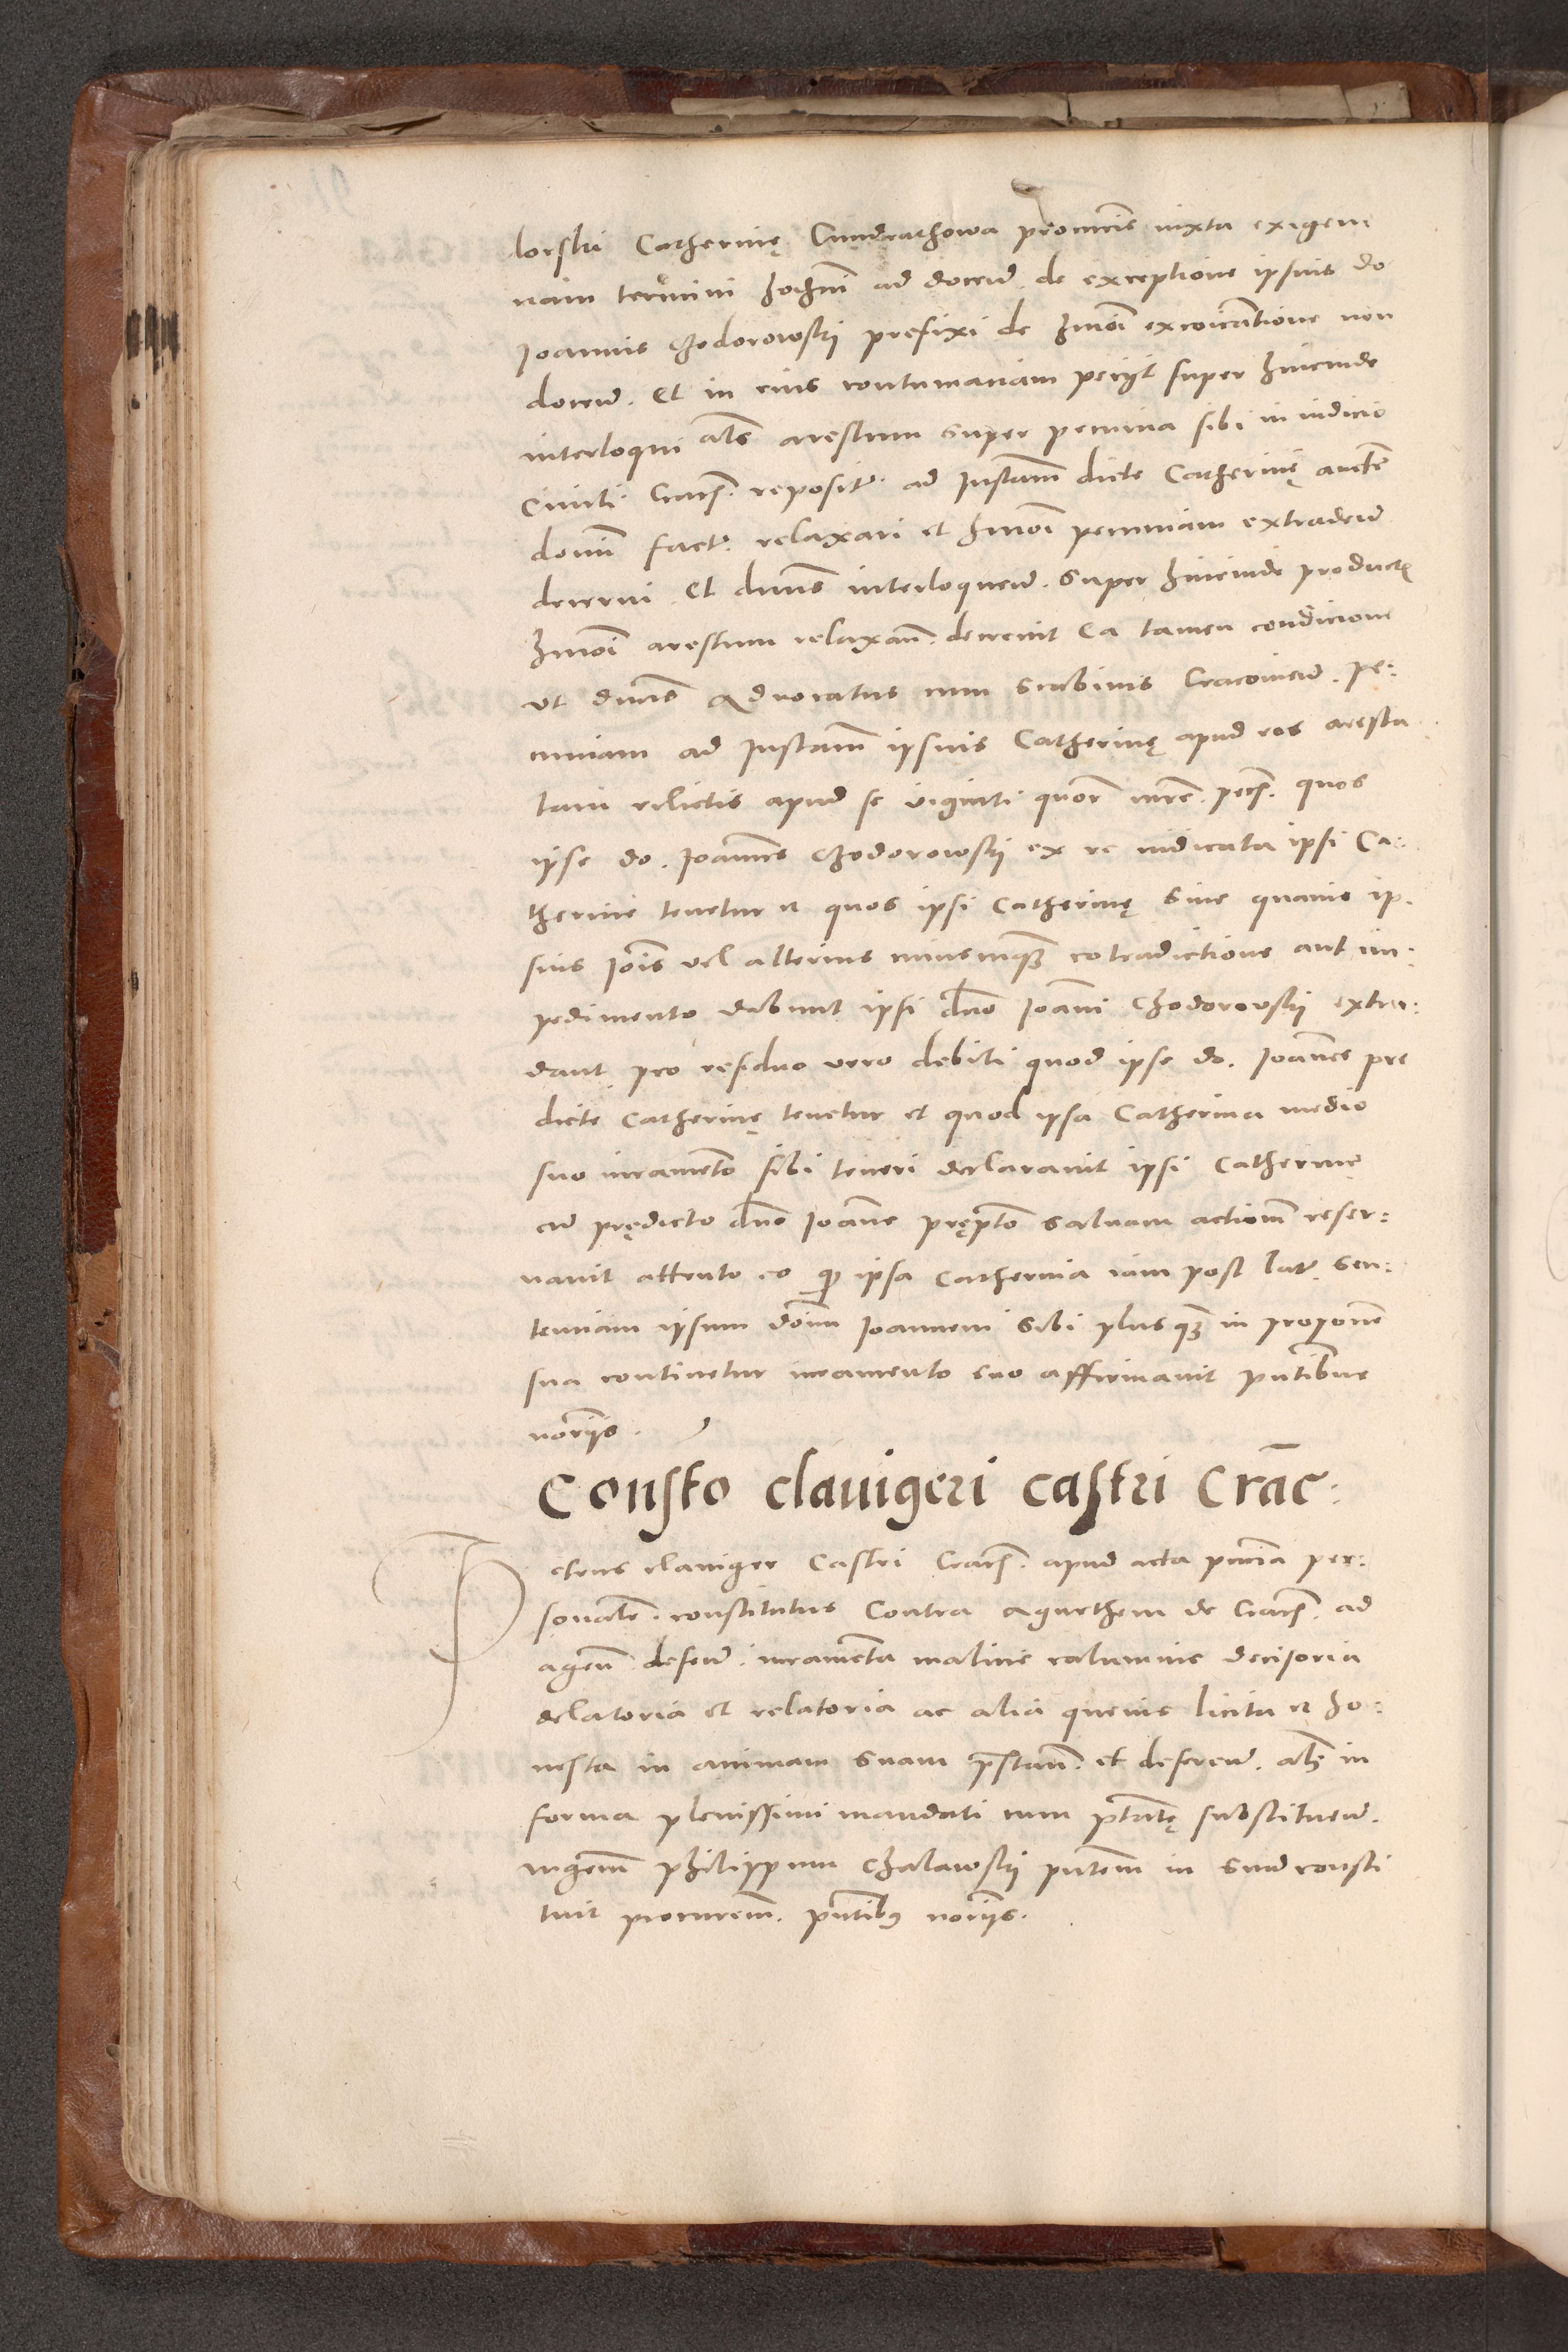 lorski Catherinę Cundrathowa pronunc iuxta exigen
ciam termini hodierni ad docend. de exceptione ipsius do
Ioannis Chodorowski prefixi de hmoi excoicatione non
docend. Et in eius contumaciam petiit super hincinde
interloqui als arestum super pecunia sibi in iudicio
Ciuili Cracs. reposit. ad Instam dicte Catherinę auctte
domini fact. relaxari et hmoi pecuniam extradend
decerni. Et dnus interloquend. super hincinde product
hmoi arestum relaxan. decreuit Ea tamen condicione
vt dnus Aduocatus cum scabinis Cracouien. pe:
cuniam ad Instam ipsius Catherinę apud eos aresta
tam relictis apud se viginti quor mrc. pecs. quos
ipse do. Ioannes Chodorowski ex re iudicata ipsi Ca:
therine tenetur et quos ipsi Catherinę sine quauis ip.
sius Iois vel alterius cuiuscumq cotradictione aut im:
pedimento dabunt ipsi dno Ioani Chodorowski extra:
dant pro residuo vero debiti quod ipse do. Ioannes pre
dicte Catherinę tenetur et quod ipsa Catherina medio
suo iuramento sibi teneri declarauit ipsi Catherinę
cu prędicto dno Ioanne pręptto saluam actionem reser:
uauit attento eo q ipsa Catherina iam post lat. sen:
tenciam ipsum domi Ioannem sibi plusq in proponen
sua continetur iuramento suo affirmauit pntibus
noriis.
Consto clauigeri castri Crac:
Petrus clauiger Castri Cracs. apud acta pncia per:
sonalr. constitutus Contra Agnethem de Cracs. ad
agen. defend. iuramenta malicie calumnie decisoria
delatoria et relatoria ac alia queuis licita et ho:
nesta in animam suam prestan. et deferend. als in
forma plenissimi mandati cum ptatę substituend.
ingenm Philippum Chalawski pntem in suu consti
tuit procurem. pntibus noriis.